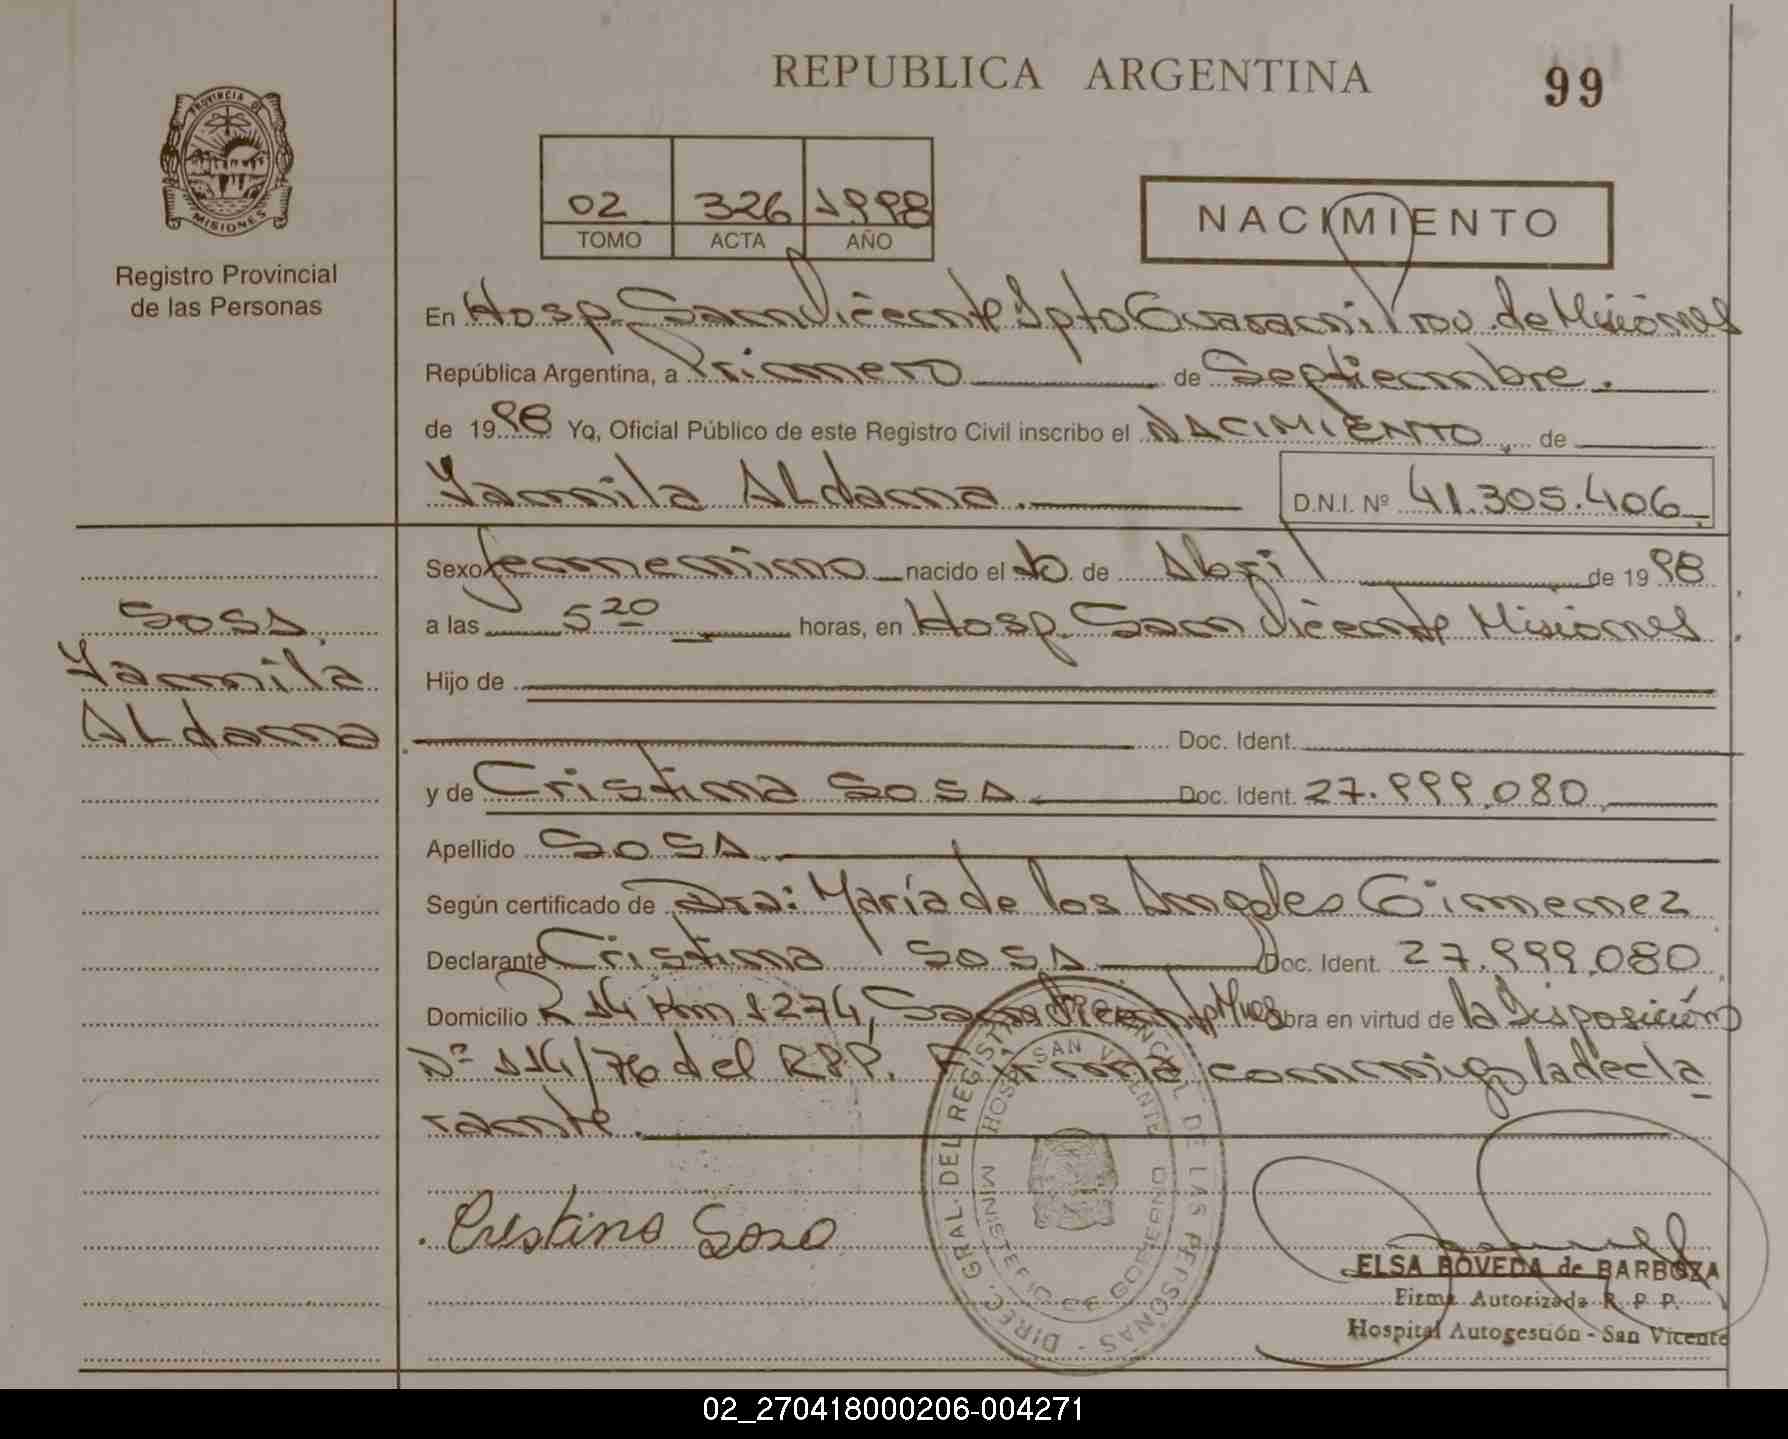 REPUBLICA ARGENTINA
99
PROVINCIA DE
MISIONES
Registro Provincial
de las Personas
02 326 1998
TOMO ACTA AÑO
NACIMIENTO
En Hosp. San Vicente Dpto Guarani Prov. de Misiones
República Argentina, a Primero de Septiembre.
de 1998 Yo, Oficial Público de este Registro Civil inscribo el NACIMIENTO, de
Yamila Aldana.
D.N.I. Nº 41.305.406
Sexo femenino nacido el de Abril de 1998
a las 5 20 horas, en Hosp. San Vicente Misiones
SOSA
Yamila
Aldana
Hijo de
Doc. Ident.
y de Cristina SOSA Doc. Ident. 27.999.080
Apellido SOSA
Según certificado de Dra: María de los Angeles Gimenez
Declarante Cristina SOSA Doc. Ident. 27.999.080
Domicilio R 14 Km 1274, San Vicente Mnes obra en virtud de la Disposición
Nº 114/76 del R.P.P. Firma conmigo la decla
rante.
DIREC. GRAL. DEL REGISTRO PROVINCIAL DE LAS PERSONAS
HOSP. SAN VICENTE
MINISTERIO DE GOBIERNO
Cristina Sosa
ELSA BOVEDA de BARBOZA
Firma Autorizada R. P. P.
Hospital Autogestión - San Vicente
02_270418000206-004271